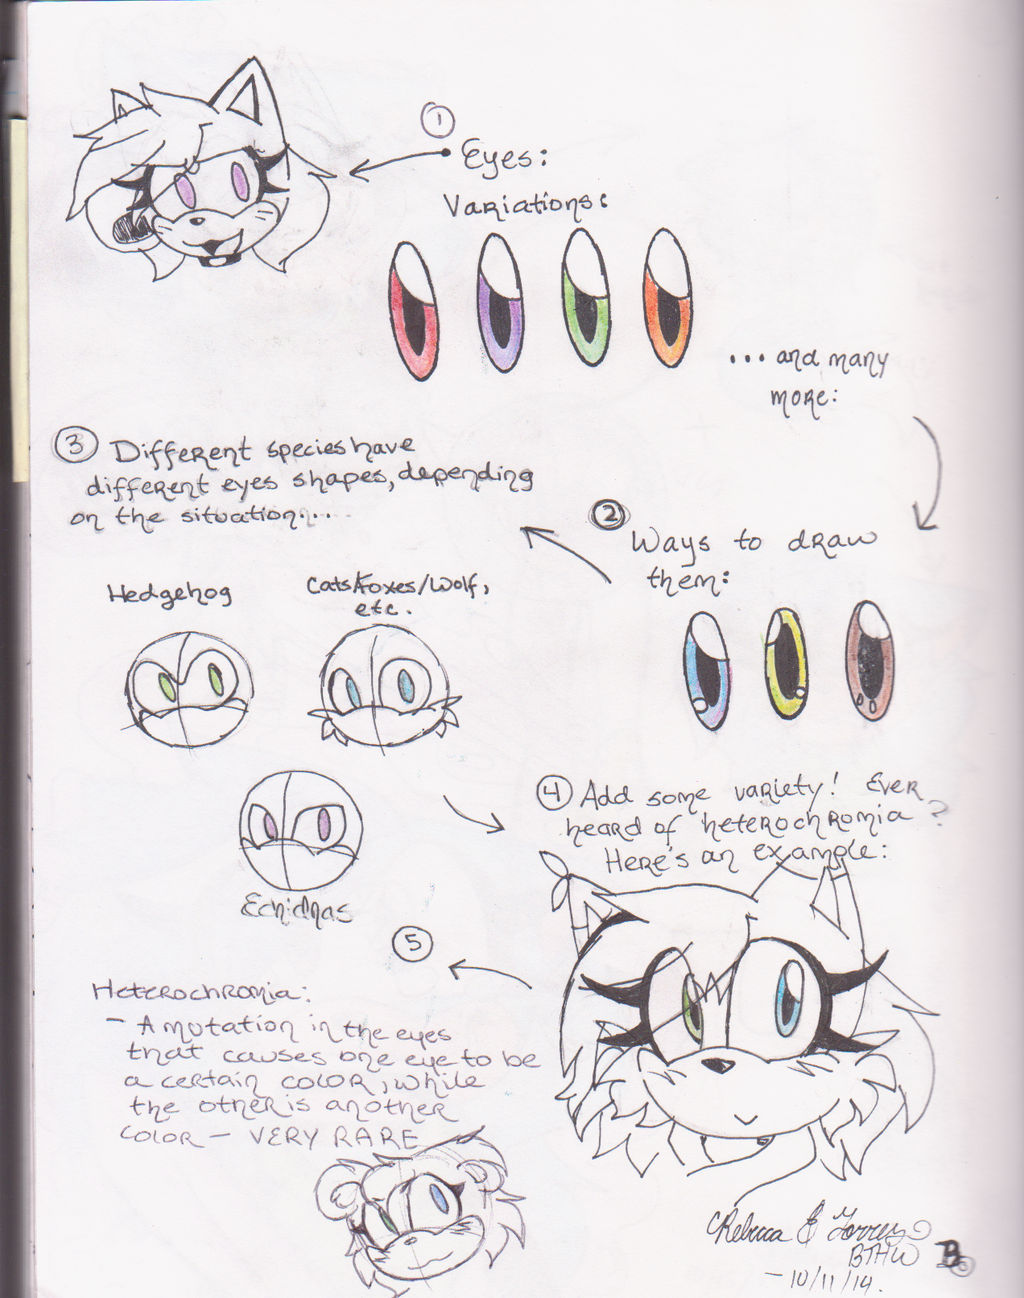 1
Eyes:
Variations:
...and many
more:
2
Ways to draw
them:
3 Different species have
different eyes shapes, depending
on the situation...
Hedgehog
Cats/Foxes/Wolf,
etc.
Echidnas
4 Add some variety! Ever
heard of heterochromia?
Here's an example:
5
Heterochromia:
- A mutation in the eyes
that causes one eye to be
a certain color, while
the other is another
color - VERY RARE
Rebecca
BTHW
- 10/11/14.
B